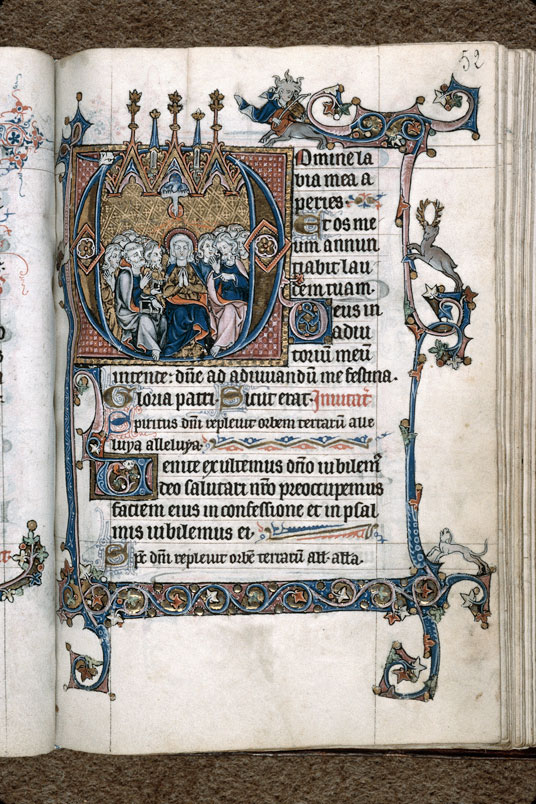 52
Domine la
bia mea a
peries.
Et os me
um annun
tiabit lau
dem tuam.
Deus in
adiu
torium meū
intende: dn̄e ad adiuuandū me festina.
Gloria patri. Sicut erat. Inuitat̄
Spiritus dn̄i repleuit orbem terrarū alle
luya alleluya.
Uenite exultemus dn̄o iubilem᷒
deo salutari nr̄o preoccupemus
faciem eius in confessione et in psal
mis iubilemus ei.
Sp̄c dn̄i repleuit orbē terrarū All. alla.